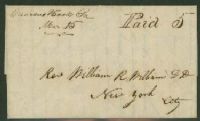 Paid 5
Mar 15
Rev William R Williams D.D.
New York
City